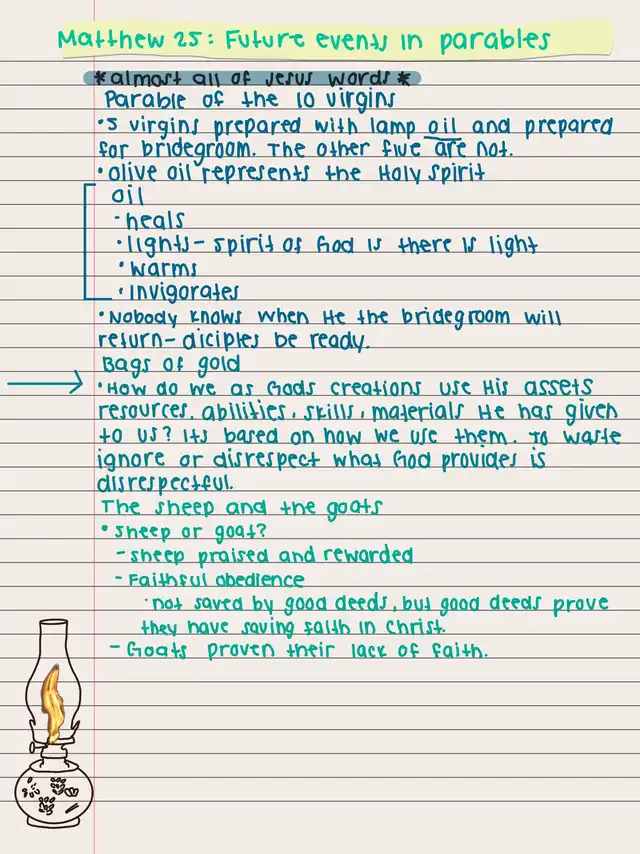 Matthew 25: Future events in parables
*almost all of Jesus words*
Parable of the 10 virgins
•5 virgins prepared with lamp oil and prepared
for bridegroom. The other five are not.
•olive oil represents the Holy Spirit
oil
•heals
•lights- spirit of God is there is light
•warms
•invigorates
•Nobody knows when He the bridegroom will
return- diciples be ready.
Bags of gold
•How do we as Gods creations use His assets
resources, abilities, skills, materials He has given
to us? Its based on how we use them. To waste
ignore or disrespect what God provides is
disrespectful.
The sheep and the goats
•sheep or goat?
-sheep praised and rewarded
-Faithful obedience
•not saved by good deeds, but good deeds prove
they have saving faith in Christ.
-Goats proven their lack of faith.